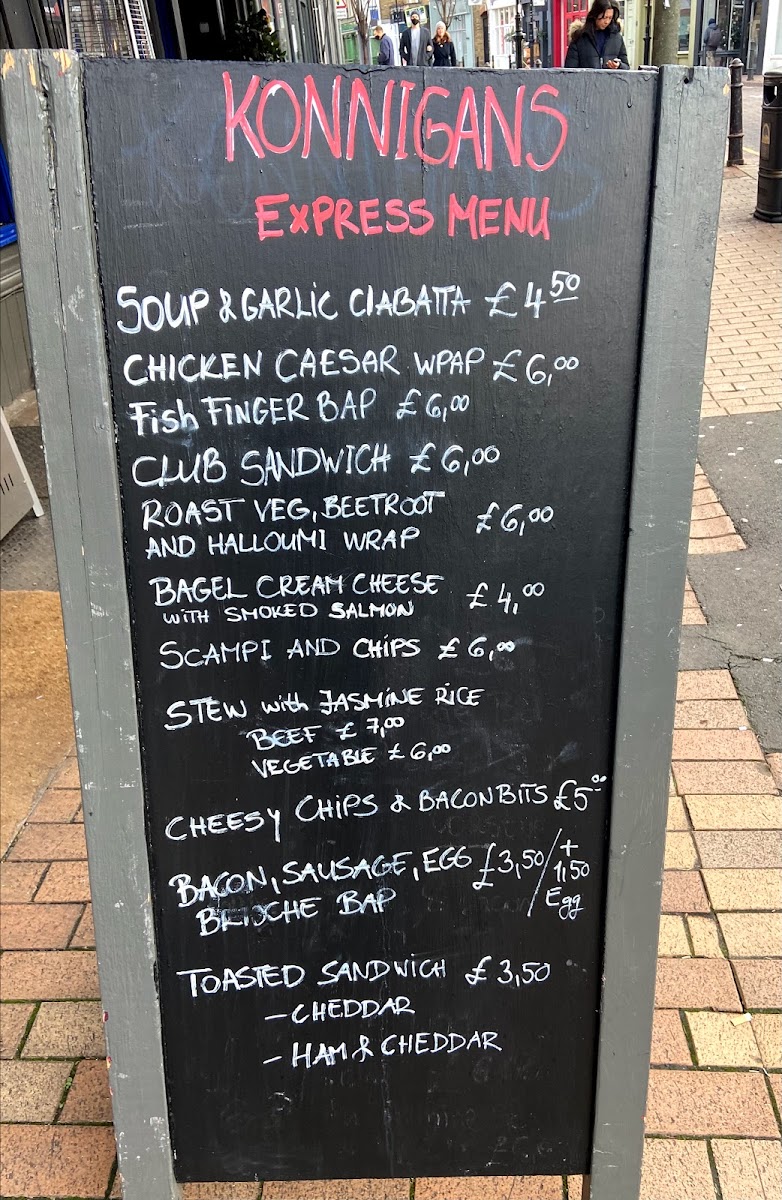 KONNIGANS
EXPRESS MENU
SOUP & GARLIC CIABATTA £4.50
CHICKEN CAESAR WPAP £6,00
Fish FINGER BAP £6,00
CLUB SANDWICH £6,00
ROAST VEG, BEETROOT £6,00
AND HALLOUMI WRAP
BAGEL CREAM CHEESE £4,00
WITH SMOKED SALMON
SCAMPI AND CHIPS £6,00
STEW with JASMINE RICE
BEEF £7,00
VEGETABLE £6,00
CHEESY CHIPS & BACON BITS £5.00
BACON, SAUSAGE, EGG £3,50/+1,50 Egg
BRIOCHE BAP
TOASTED SANDWICH £3,50
- CHEDDAR
- HAM & CHEDDAR